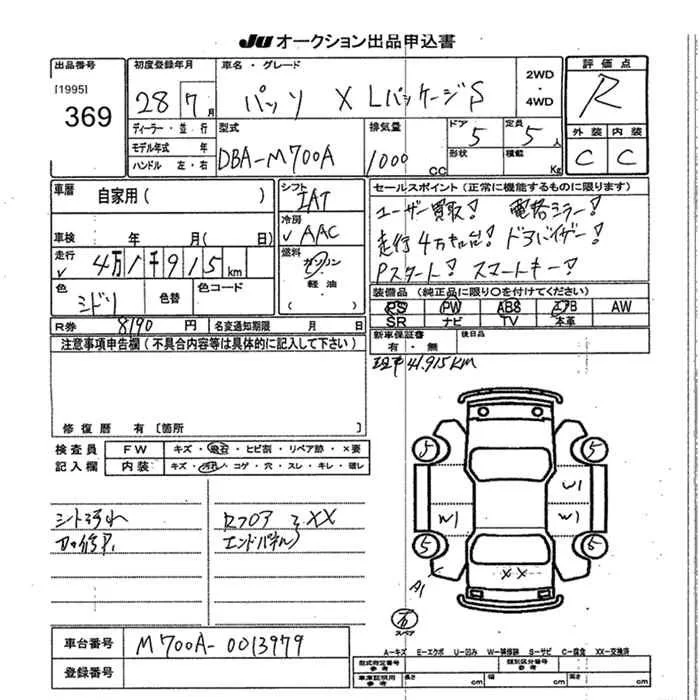 JU オークション出品申込書
出品番号 初度登録年月 車名・グレード 2WD・4WD 評価点
[1995]
369
28 7月 パッソ X Lパッケージ S R
ディーラー・並行 型式 排気量 ドア 定員 外装 内装
モデル年式 年 DBA-M700A 1000CC 5 5人 C C
ハンドル 左・右 形状 積載 Kg
車歴 自家用( ) シフト IAT セールスポイント(正常に機能するものに限ります)
冷房 AAC ユーザー買取! 電格ミラー!
車検 年 月( 日) 走行4万キロ台! ドアバイザー!
走行 4万1千915km 燃料 ガソリン・軽油 Pスタート! スマートキー!
色 ミドリ 色替 色コード ( ) 装備品(純正品に限り○を付けてください)
PS PW ABS エアB AW
R券 8190円 名変通知期限 月 日 SR ナビ TV 本革
注意事項申告欄(不具合内容等は具体的に記入して下さい) 新車保証書 有・無 後日品
現車41,915KM
修復歴 有[箇所 ]
検査員 FW キズ・飛石・ヒビ割・リペア跡・×要
記入欄 内装 キズ・汚れ・コゲ・穴・スレ・キレ・破レ
シート汚れ Rフロア ミXX
エンドパネル
5 5
W1
W1 W1
5 5
A1 XX
スペア
車台番号 M700A-0013979
登録番号
A-キズ E-エクボ U-凹み W-補修跡 S-サビ C-腐食 XX-交換済
型式指定番号 参考 類別区分番号 参考
車庫証明用 参考 長さ cm 幅 cm 高さ cm